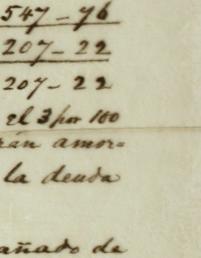 547-76
207-22
207-22
el 3 por 100
rán amor=
la deuda
añado de